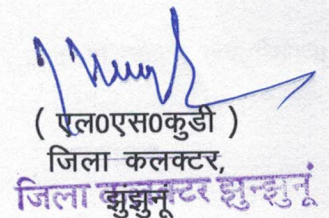 ( एल0एस0कुडी )
जिला कलक्टर,
झुझुनू
जिला कलक्टर झुन्झुनूं